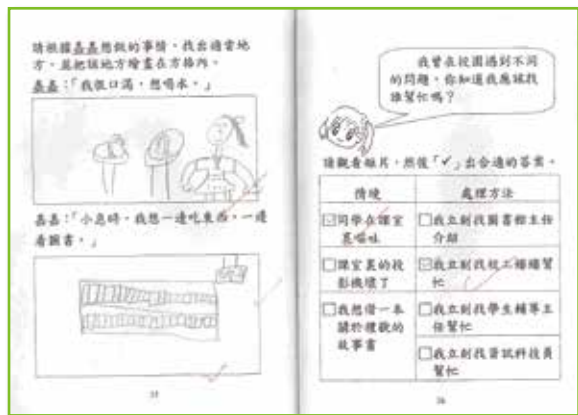 請根據晶晶想做的事情，找出適當地
方，並把該地方繪畫在方格內。
晶晶：「我很口渴，想喝水。」
晶晶：「小息時，我想一邊吃東西，一邊
看圖書。」
35
我曾在校園遇到不同
的問題，你知道我應該找
誰幫忙嗎？
請觀看短片，然後「✓」出合適的答案。
情境
處理方法
同學在課室
裏嘔吐
我立刻找圖書館主任
介紹
課室裏的投
影機壞了
我立刻找校工嬸嬸幫
忙
我想借一本
關於種歡的
故事書
我立刻找學生輔導主
任幫忙
我立刻找資訊科技員
幫忙
36